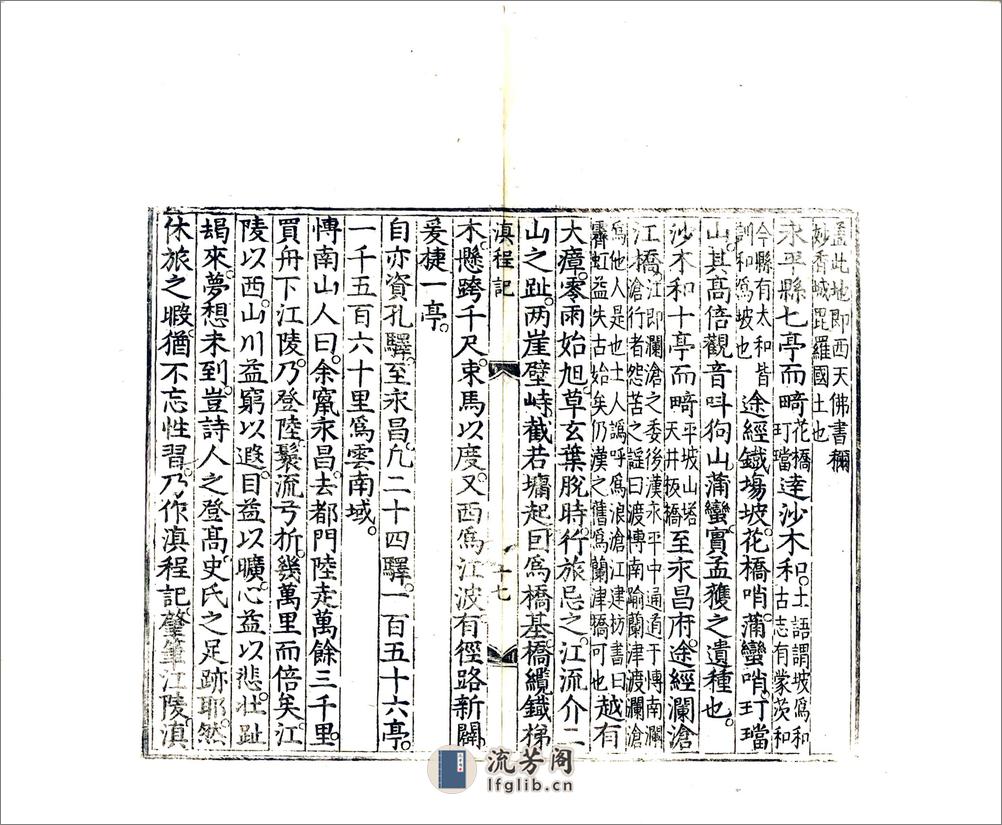 蓋此地即西天佛書稱
妙香城毘羅國土也
永平縣七亭而畸花橋玎璫達沙木和土語謂坡爲和古志有蒙茨和
今縣有太和皆訓和爲坡也途經鐵塲坡花橋哨蒲蠻哨玎璫
山其高倍觀音呌狗山蒲蠻實孟獲之遺種也
沙木和十亭而畸平坡山塔天井板橋至永昌府途經瀾滄
江橋江即瀾滄之委後漢永平中通道于博南瀾滄行者怨苦之謡曰渡博南踰蘭津渡瀾滄
爲他人是也土人譌呼爲浪滄江建坊書曰霽虹益失古始矣仍漢之舊爲蘭津橋可也越有
大瘴零雨始旭草玄葉脫時行旅忌之江流介二
山之趾兩崖壁峙截若墉起因爲橋基橋纜鐵梯
滇程記
十七
木懸跨千尺束馬以度又西爲江波有徑路新闢
爰捷一亭
自亦資孔驛至永昌凢二十四驛一百五十六亭
一千五百六十里爲雲南域
博南山人曰余竄永昌去都門陸走萬餘三千里
買舟下江陵乃登陸鬟流弓折幾萬里而倍矣江
陵以西山川益窮以遐目益以曠心益以悲壯趾
朅來夢想未到豈詩人之登高史氏之足跡耶然
休旅之暇猶不忘性習乃作滇程記肇筆江陵滇
流芳阁
lfglib.cn